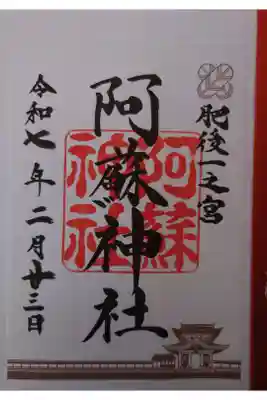 肥後一之宮
阿蘇神社
阿蘇
神社
令和七年二月廿三日